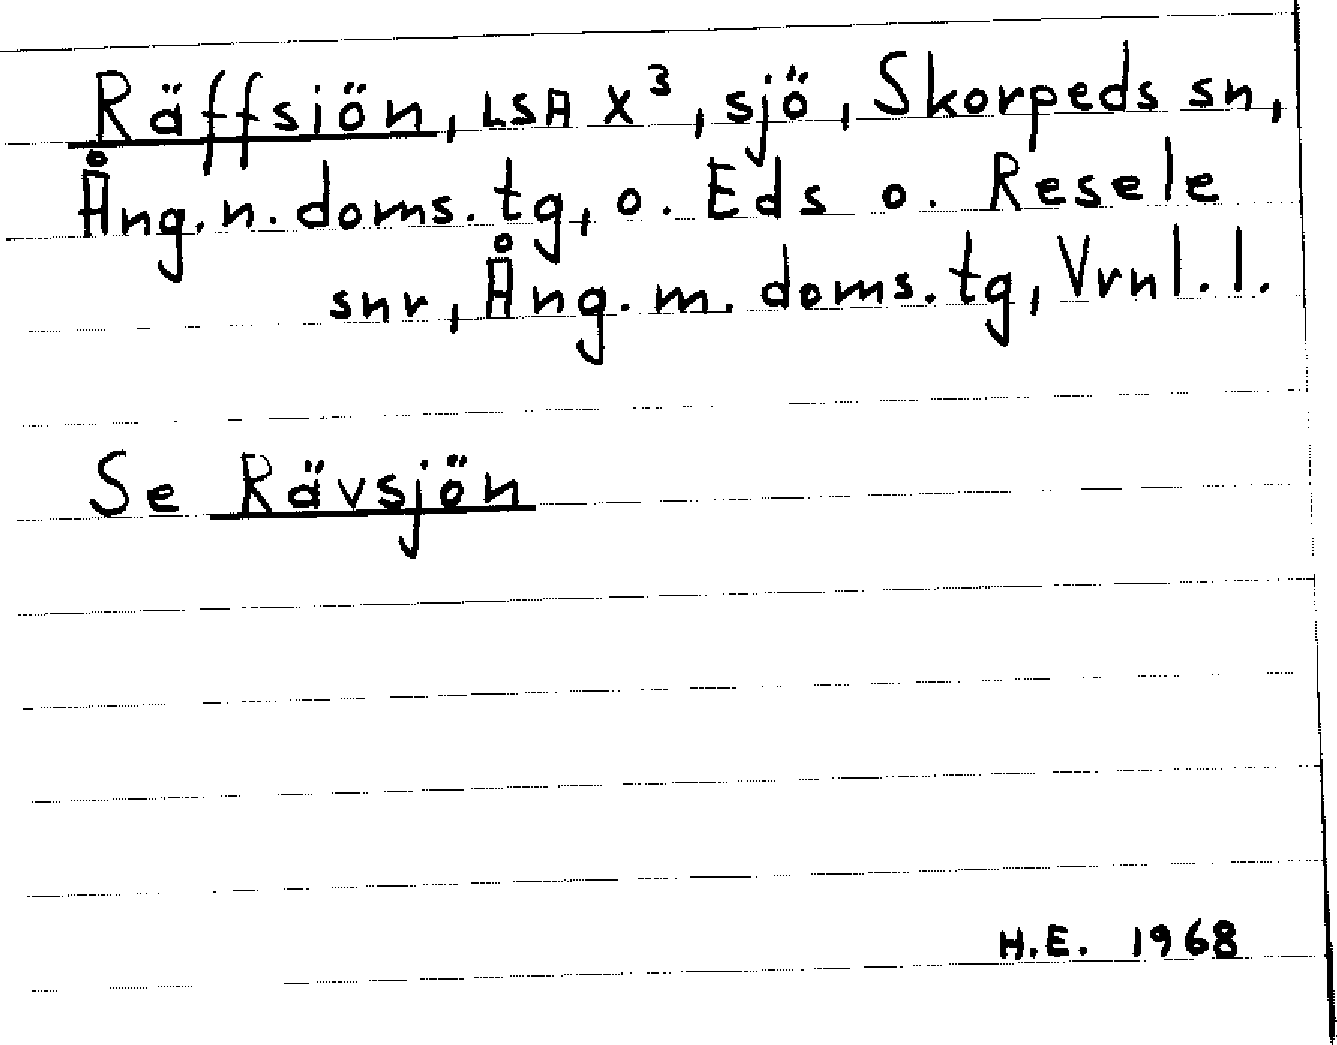 Räffsiön, LSA X³, sjö, Skorpeds sn,
Ång. n. doms. tg, o. Eds o. Resele
snr, Ång. m. doms. tg, Vrnl. l.
Se Rävsjön
H.E. 1968